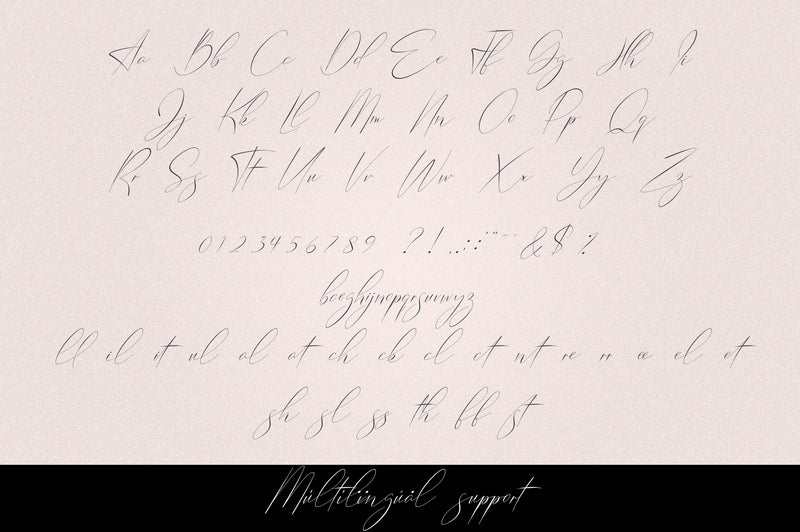 Aa Bb Cc Dd Ee Ff Gg Hh Ii
Jj Kk Ll Mm Nn Oo Pp Qq
Rr Ss Tt Uu Vv Ww Xx Yy Zz
0123456789 ?! .,:;'"~- &$%
boeghijnopqrsuvwyz
ll il it ul al at ch ck cl ct nt re rr ee el et
sh sl ss th ff st
Múltilíngúál support